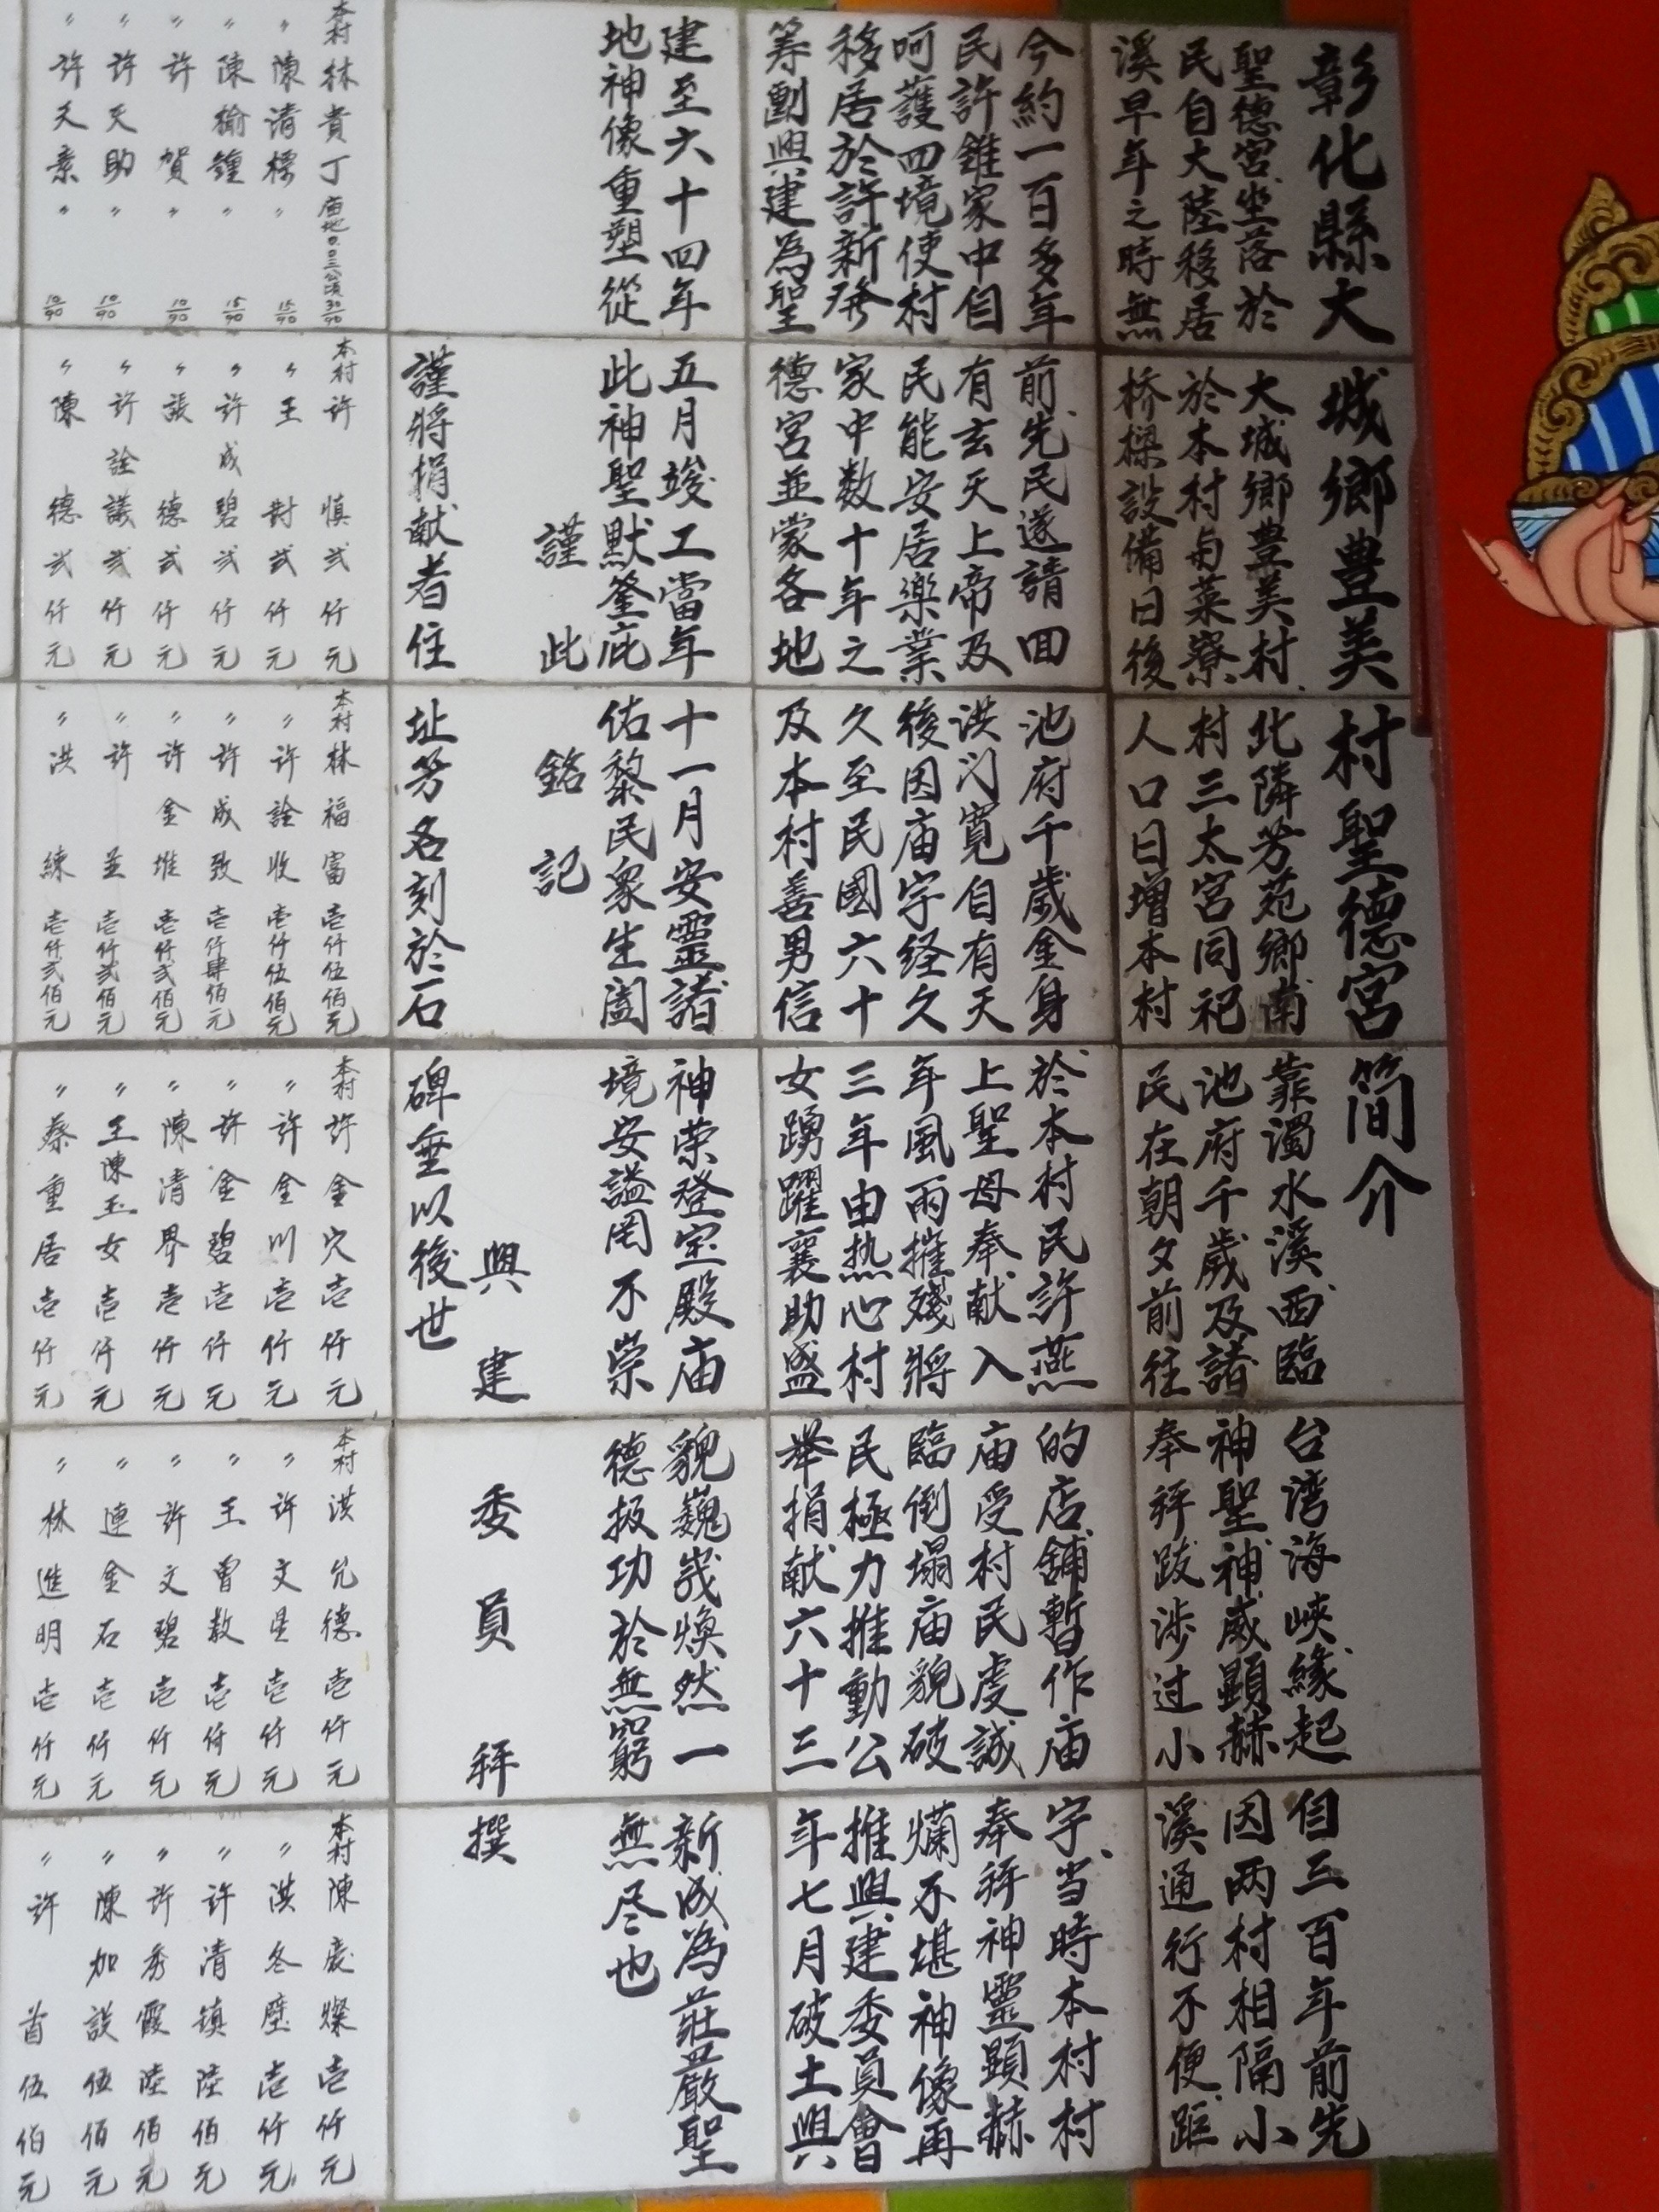 彰化縣大城鄉豊美村聖德宮简介
聖德宮坐落於大城鄉豊美村北隣芳苑鄉南靠濁水溪西臨台湾海峽緣起自三百年前先
民自大陸移居於本村與菜寮村三太宮同祀池府千歲及諸神聖神威顯赫因両村相隔小
溪早年之時無桥樑設備日後人口日增本村民在朝夕前往奉拜跋涉过小溪通行不便距
今約一百多年前先民遂請回池府千歲金身於本村民許燕的店舖暫作庙宇当時本村村
民許錐家中自有玄天上帝及洪门寬自有天上聖母奉献入庙受村民虔誠奉拜神靈顯赫
呵護四境使村民能安居樂業後因庙宇経久年風雨摧殘將臨倒塌庙貌破爛不堪神像再
移居於許新發家中数十年之久至民國六十三年由热心村民極力推動公推興建委員會
筹劃興建為聖德宮並蒙各地及本村善男信女踴躍襄助盛举捐献六十三年七月破土興
建至六十四年五月竣工當年十一月安靈諸神荣登宝殿庙貌巍峩煥然一新成為莊嚴聖
地神像重塑從此神聖默荃庇佑黎民衆生闔境安謐罔不崇德报功於無窮無尽也
謹此銘記
興建委員拜撰
謹將捐献者住址芳名刻於石碑垂以後世
本村林貴丁庙地0.03公頃30/90
〃陳清標〃15/90
〃陳榆鐘〃15/90
〃許賀〃10/90
〃許天助〃10/90
〃許天素〃10/90
本村許慎弍仟元
〃王對弍仟元
〃許成碧弍仟元
〃張德弍仟元
〃許詮議弍仟元
〃陳德弍仟元
本村林福富壱仟伍佰元
〃許詮收壱仟伍佰元
〃許成致壱仟肆佰元
〃許金堆壱仟弍佰元
〃許並壱仟弍佰元
〃洪練壱仟弍佰元
本村許金穴壱仟元
〃許金川壱仟元
〃許金碧壱仟元
〃陳清界壱仟元
〃王陳玉女壱仟元
〃蔡重居壱仟元
本村洪允德壱仟元
〃許文星壱仟元
〃王曾教壱仟元
〃許文碧壱仟元
〃連金石壱仟元
〃林進明壱仟元
本村陳慶燦壱仟元
〃洪冬壁壱仟元
〃許清镇陸佰元
〃許秀霞陸佰元
〃陳加設伍佰元
〃許首伍佰元